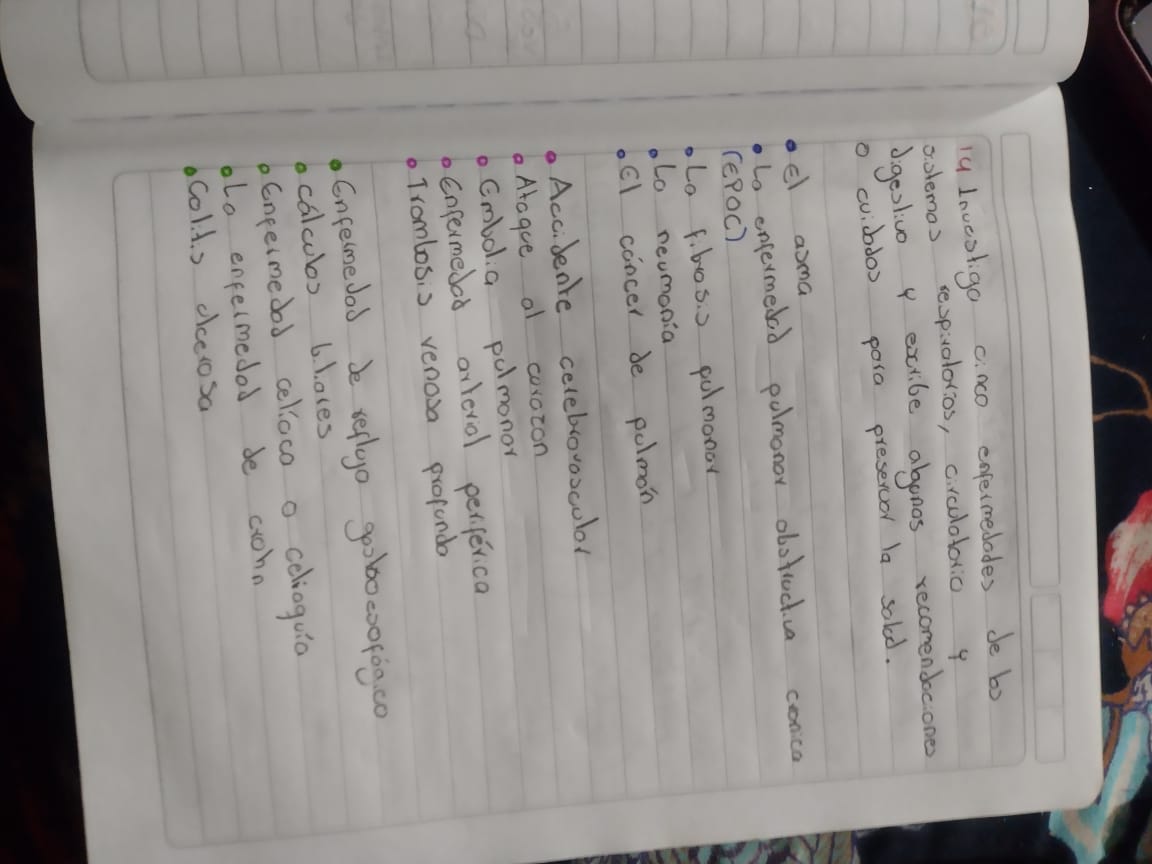 14 Investiga cinco enfermedades de los
sistemas respiratorios, circulatorio y
digestivo y escribe algunas recomendaciones
o cuidados para preservar la salud.
• El asma
• La enfermedad pulmonar obstructiva cronica
(EPOC)
• La fibrosis pulmonar
• La neumonía
• El cáncer de pulmón
• Accidente cerebrovascular
• Ataque al corazon
• Embolia pulmonar
• Enfermedad arterial periférica
• Trombosis venosa profunda
• Enfermedad de reflujo gastroesofágico
• Cálculos biliares
• Enfermedad celíaca o celiaquía
• La enfermedad de crohn
• Colitis ulcerosa